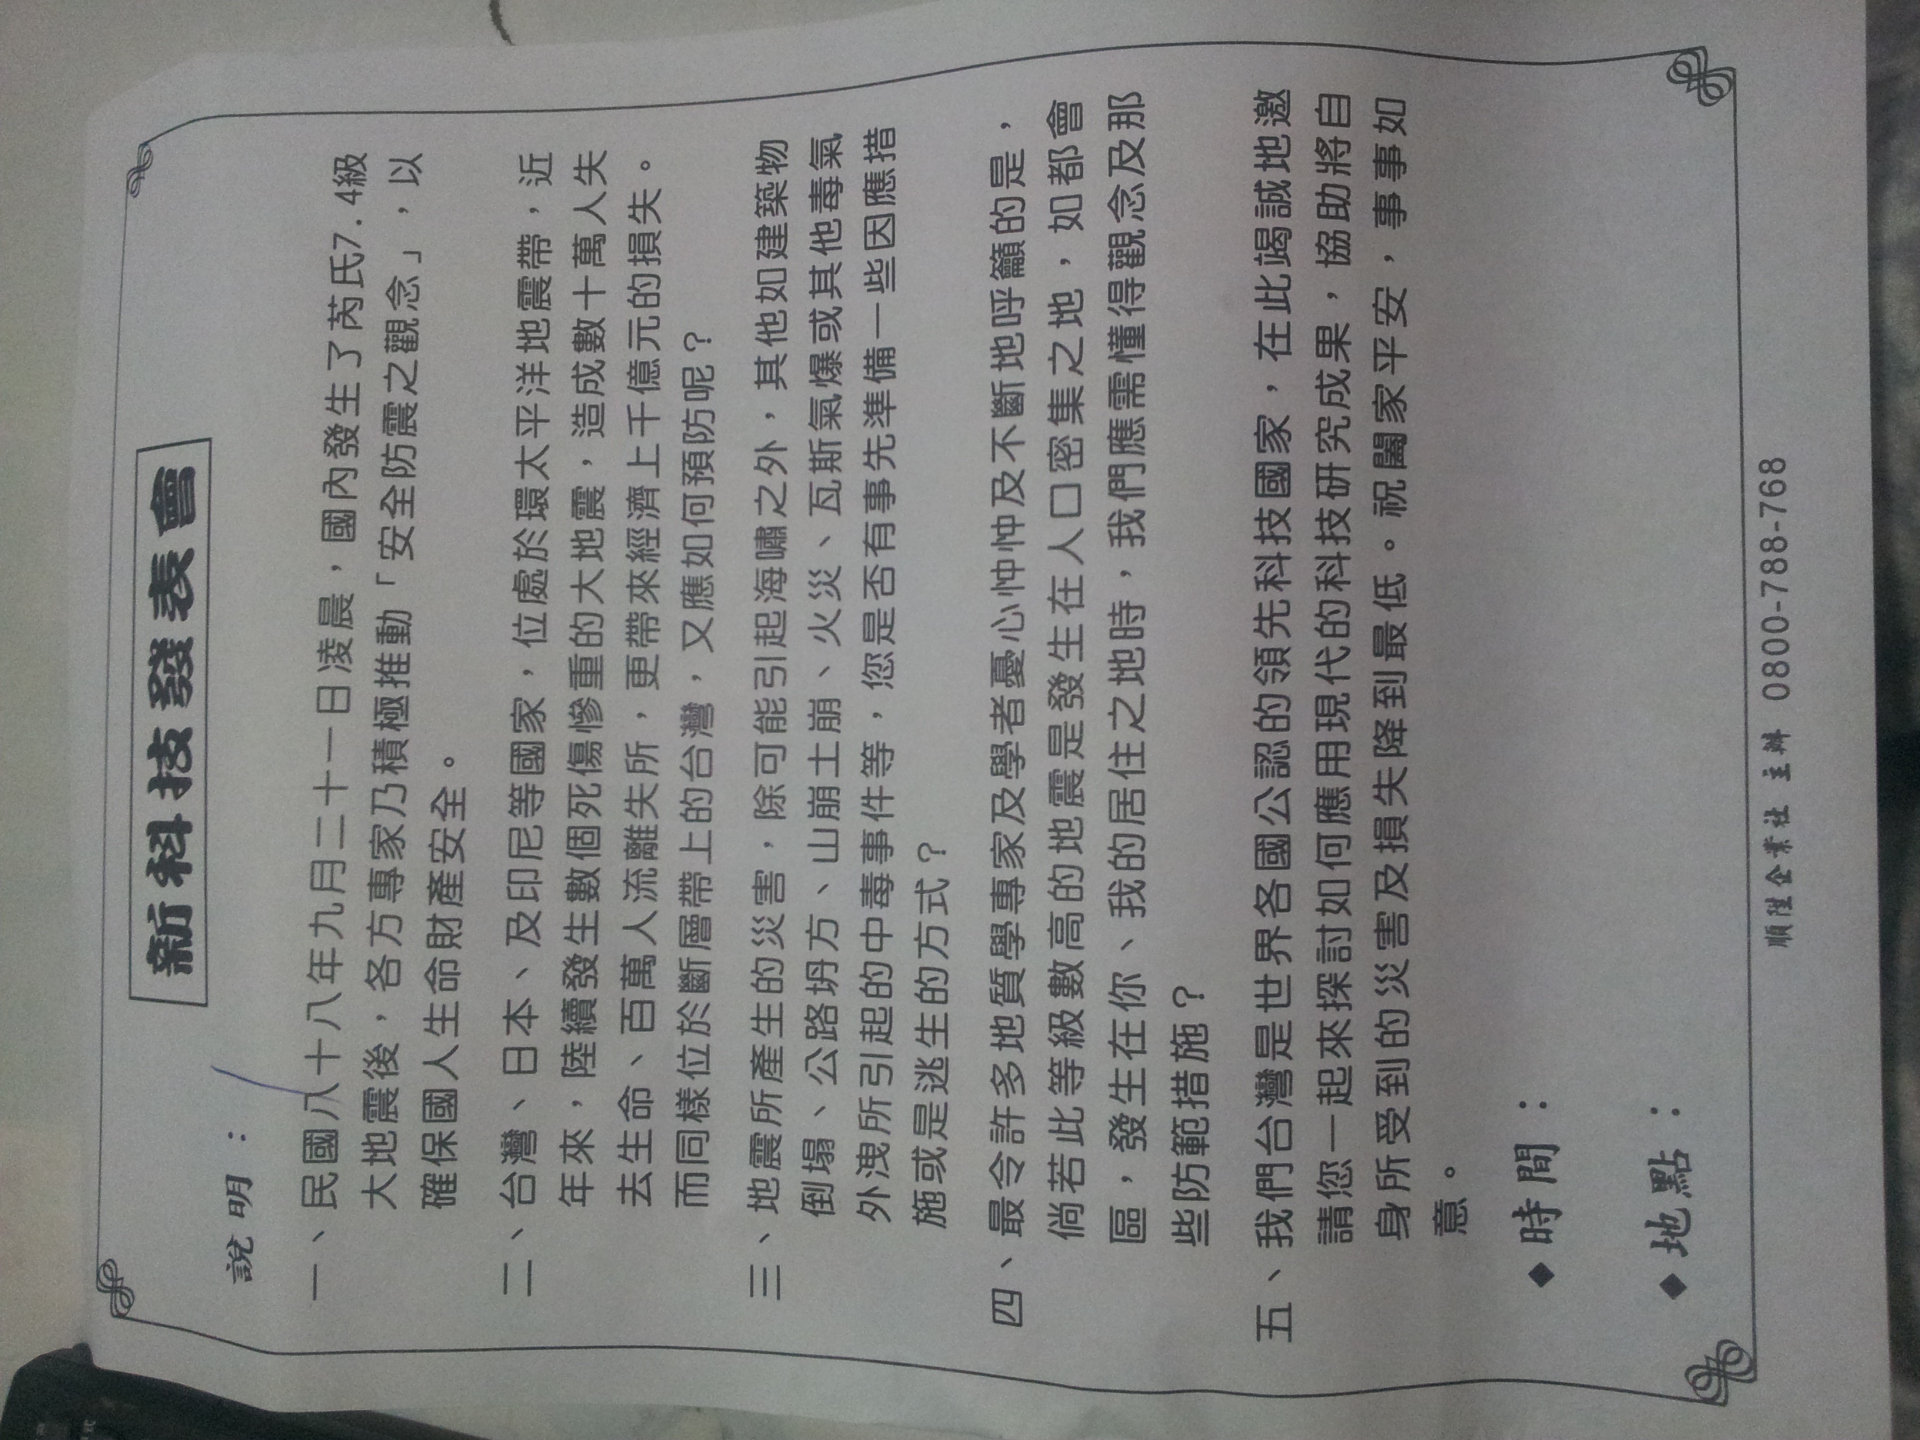 新科技發表會
說明：
一、民國八十八年九月二十一日凌晨，國內發生了芮氏7.4級
大地震後，各方專家乃積極推動「安全防震之觀念」，以
確保國人生命財產安全。
二、台灣、日本、及印尼等國家，位處於環太平洋地震帶，近
年來，陸續發生數個死傷慘重的大地震，造成數十萬人失
去生命、百萬人流離失所，更帶來經濟上千億元的損失。
而同樣位於斷層帶上的台灣，又應如何預防呢？
三、地震所產生的災害，除可能引起海嘯之外，其他如建築物
倒塌、公路坍方、山崩土崩、火災、瓦斯氣爆或其他毒氣
外洩所引起的中毒事件等，您是否有事先準備一些因應措
施或是逃生的方式？
四、最令許多地質學專家及學者憂心忡忡及不斷地呼籲的是，
倘若此等級數高的地震是發生在人口密集之地，如都會
區，發生在你、我的居住之地時，我們應需懂得觀念及那
些防範措施？
五、我們台灣是世界各國公認的領先科技國家，在此竭誠地邀
請您一起來探討如何應用現代的科技研究成果，協助將自
身所受到的災害及損失降到最低。祝闔家平安，事事如
意。
◆時間：
◆地點：
順陞企業社 主辦 0800-788-768